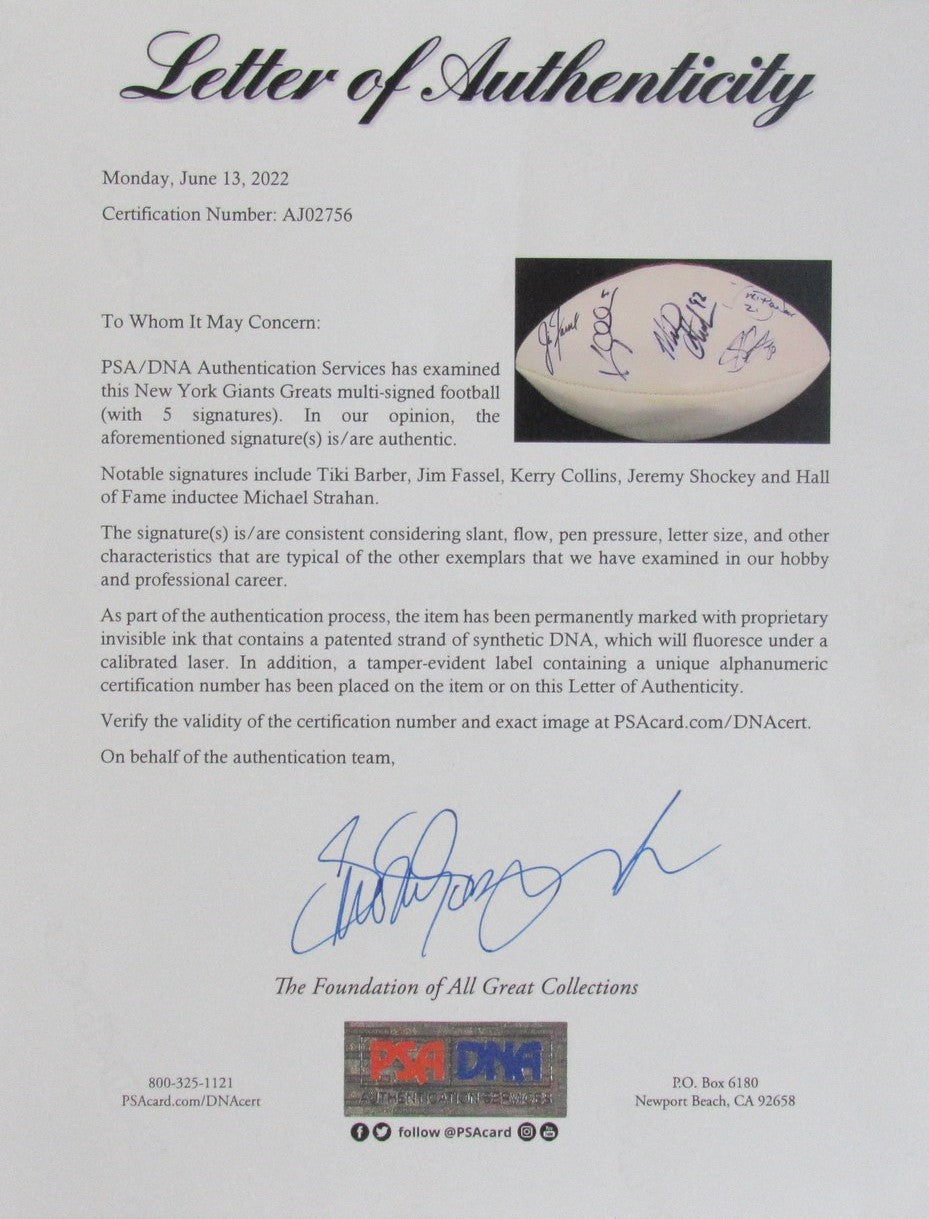 Letter of Authenticity
Monday, June 13, 2022
Certification Number: AJ02756
To Whom It May Concern:
PSA/DNA Authentication Services has examined
this New York Giants Greats multi-signed football
(with 5 signatures). In our opinion, the
aforementioned signature(s) is/are authentic.
Notable signatures include Tiki Barber, Jim Fassel, Kerry Collins, Jeremy Shockey and Hall
of Fame inductee Michael Strahan.
The signature(s) is/are consistent considering slant, flow, pen pressure, letter size, and other
characteristics that are typical of the other exemplars that we have examined in our hobby
and professional career.
As part of the authentication process, the item has been permanently marked with proprietary
invisible ink that contains a patented strand of synthetic DNA, which will fluoresce under a
calibrated laser. In addition, a tamper-evident label containing a unique alphanumeric
certification number has been placed on the item or on this Letter of Authenticity.
Verify the validity of the certification number and exact image at PSAcard.com/DNAcert.
On behalf of the authentication team,
The Foundation of All Great Collections
PSA DNA
AUTHENTICATION SERVICES
800-325-1121
PSAcard.com/DNAcert
P.O. Box 6180
Newport Beach, CA 92658
follow @PSAcard